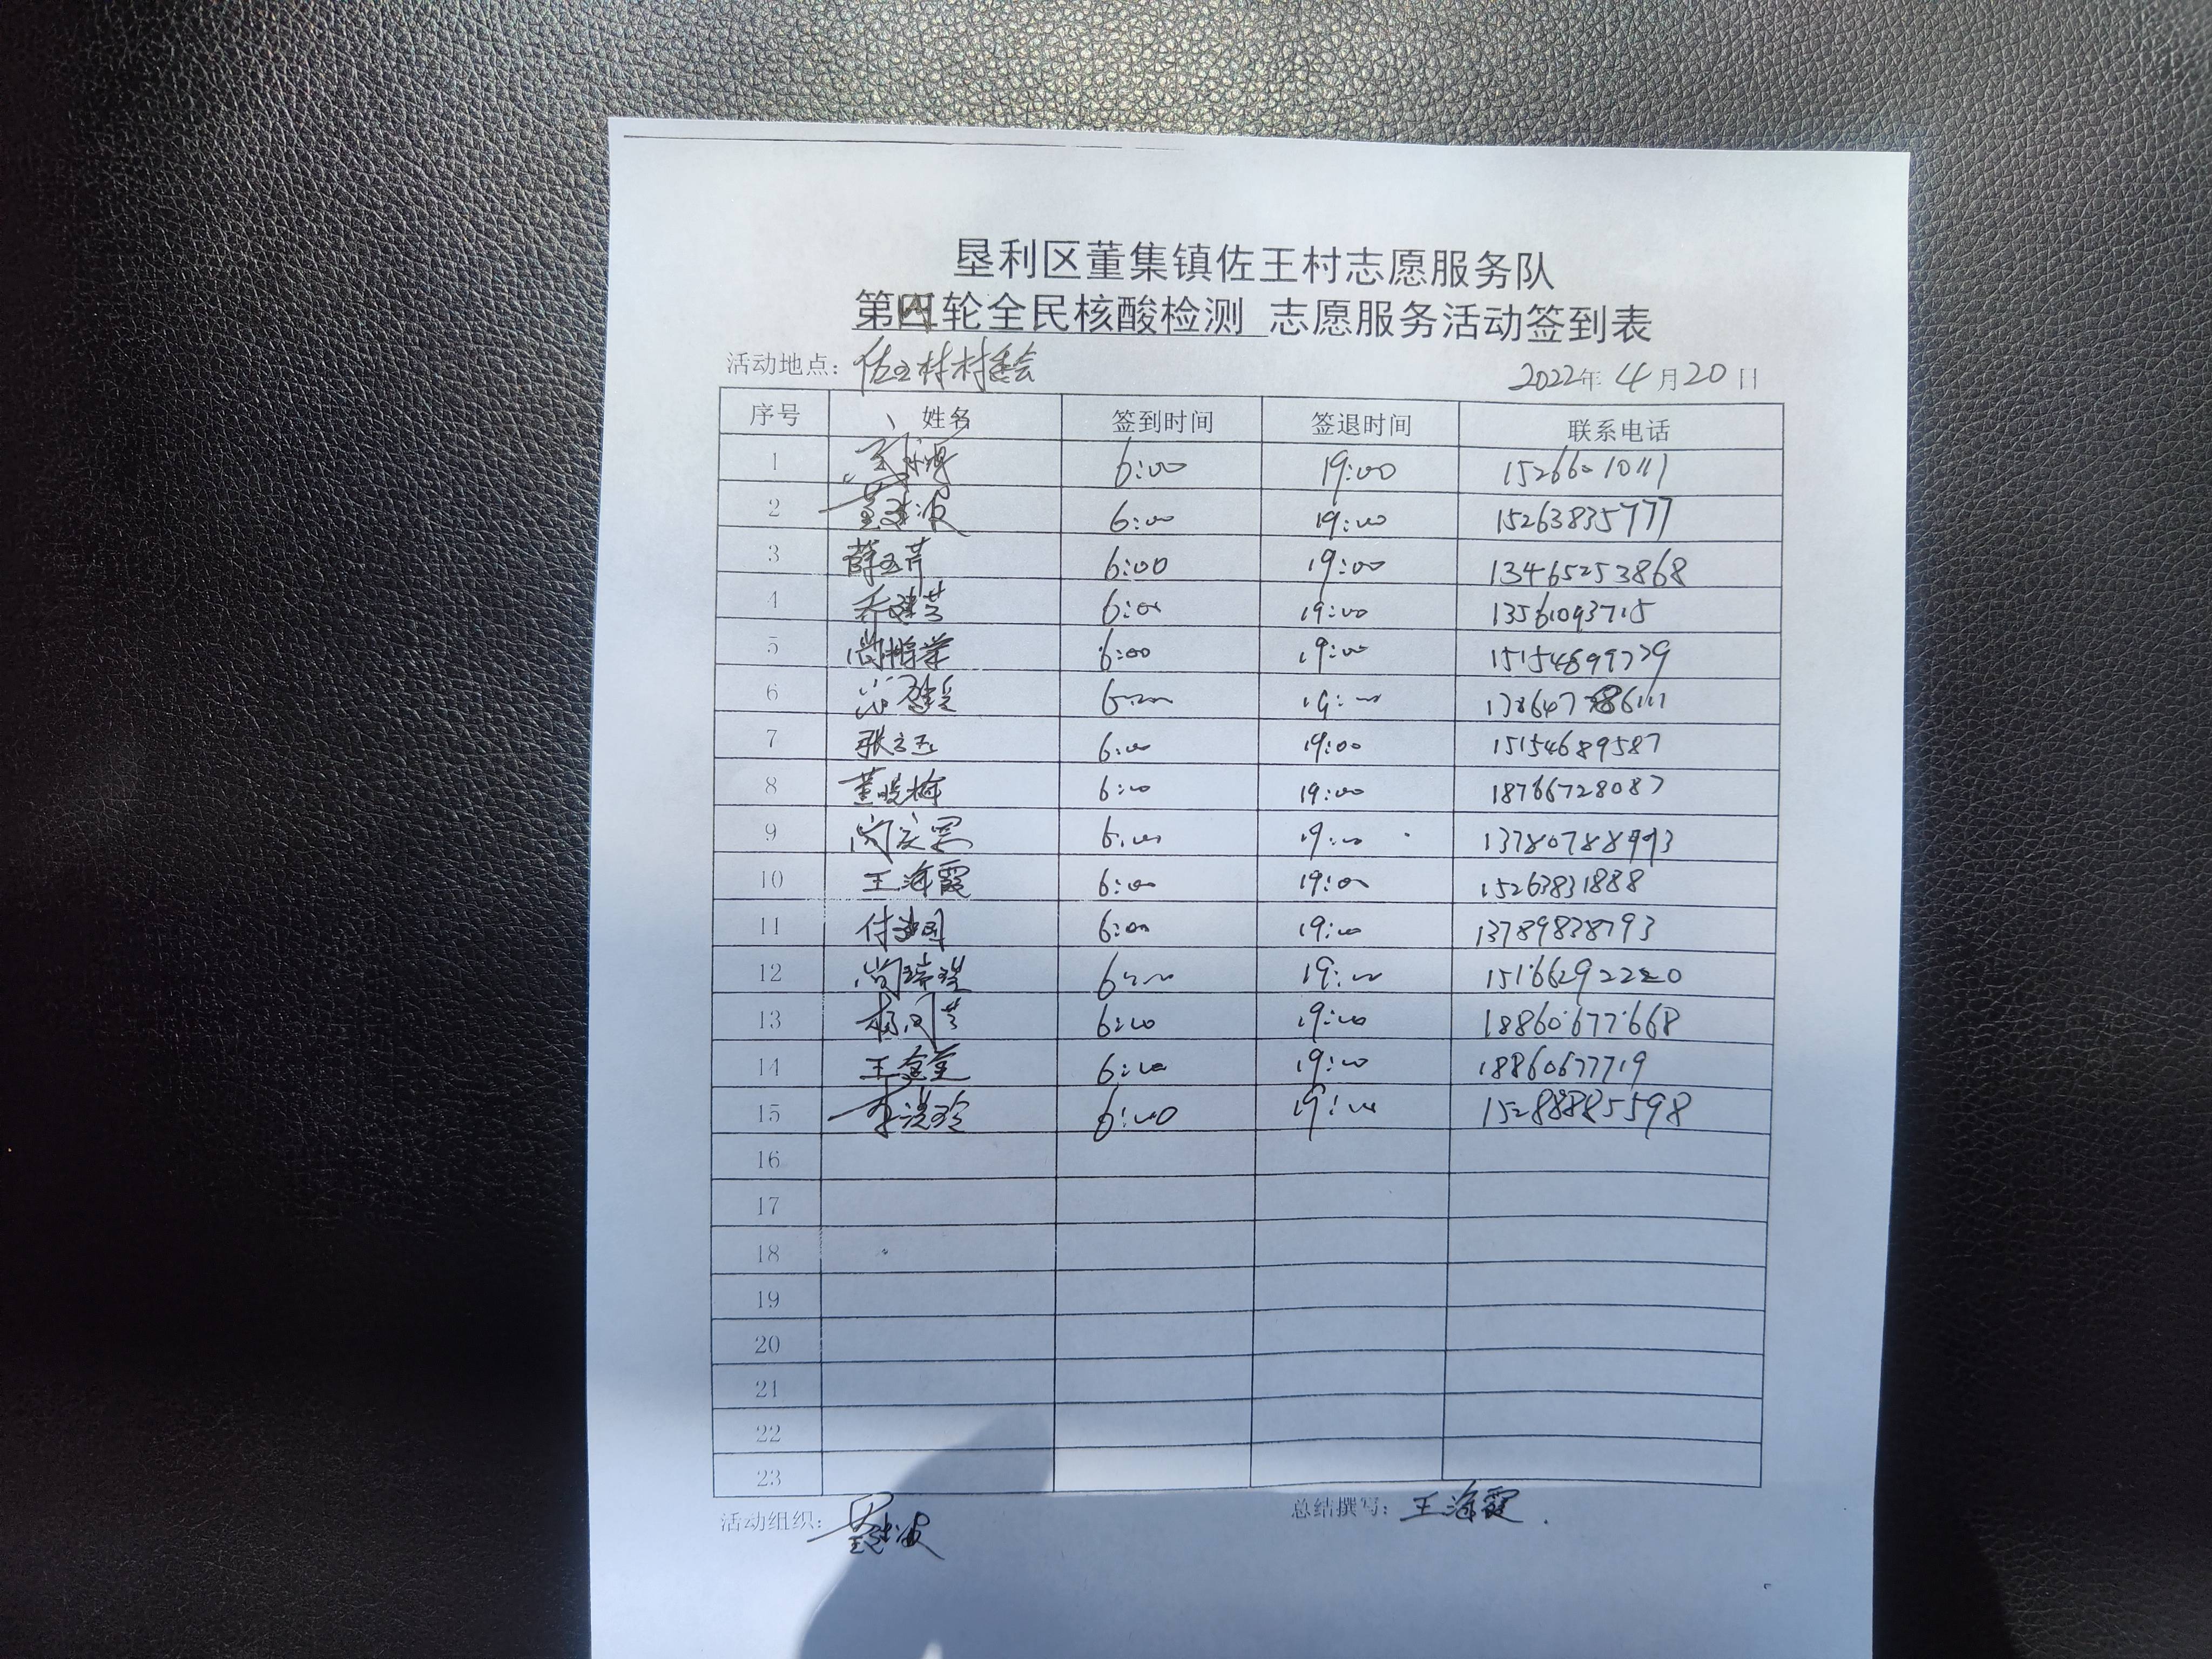 垦利区董集镇佐王村志愿服务队
第四轮全民核酸检测 志愿服务活动签到表
活动地点：佐王村村委会 2022年4月20日
序号 姓名 签到时间 签退时间 联系电话
1 6:00 19:00 15266010111
2 6:00 19:00 15263835777
3 薛玉芹 6:00 19:00 13465253868
4 乔建芸 6:00 19:00 13561093715
5 6:00 19:00
6 6:00 19:00
7 张立玉 6:00 19:00 15154689587
8 董晓梅 6:00 19:00 18766728087
9 6:00 19:00 13780788993
10 王海霞 6:00 19:00 15263831888
11 6:00 19:00 13789838793
12 6:00 19:00 15166292220
13 6:00 19:00 18860677668
14 6:00 19:00 18860677719
15 6:00 19:00 15288885598
16
17
18
19
20
21
22
23
活动组织： 总结撰写：王海霞.